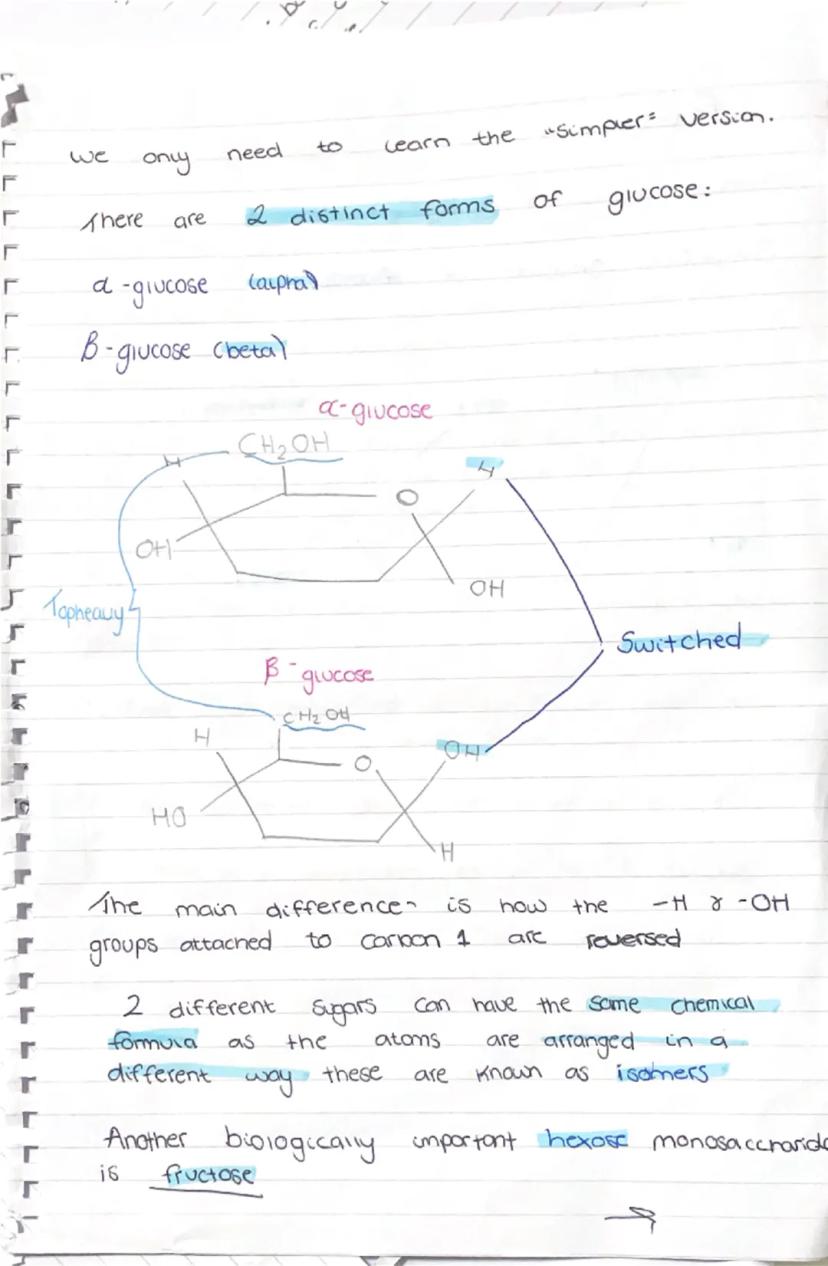 we only need to learn the "simpler" version.
There are 2 distinct forms of glucose:
α-glucose (alpha)
β-glucose (beta)
α-glucose
CH2OH
H
H
O
OH
OH
Topheavy
Switched
β-glucose
CH2OH
H
OH
O
HO
H
The main difference is how the -H & -OH
groups attached to carbon 1 are reversed
2 different sugars can have the same chemical
formula as the atoms are arranged in a
different way these are known as isomers
Another biologically important hexose monosaccharide
is fructose